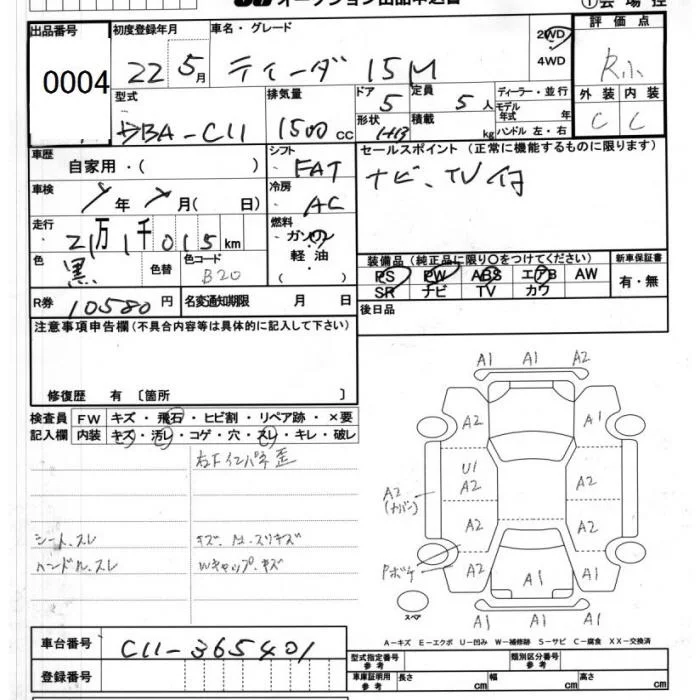 オークション出品申込書
①会場控
出品番号 初度登録年月 車名・グレード 評価点
0004 22 5月 ティーダ 15M 2WD 4WD R小
型式 排気量 ドア 定員 ディーラー・並行 外装 内装
DBA-C11 1500cc 5 5人 モデル年式 年 C C
形状 H/B 積載 kg ハンドル 左・右
車歴 自家用・( ) シフト FAT セールスポイント (正常に機能するものに限ります)
車検 年 月( 日) 冷房 AC ナビ、TV付
走行 21万1千015km 燃料 ガソリン・軽油・( )
色 黒 色替 色コード B20
装備品(純正品に限り○をつけてください) 新車保証書
PS PW ABS エアB AW 有・無
SR ナビ TV カワ
R券 10580円 名変通知期限 月 日 後日品
注意事項申告欄(不具合内容等は具体的に記入して下さい)
修復歴 有 [箇所 ]
検査員記入欄 FW キズ・飛石・ヒビ割・リペア跡・×要
内装 キズ・汚レ・コゲ・穴・スレ・キレ・破レ
右Fインパネ歪
シート、スレ
ハンドル、スレ
Wキャップ、キズ
A1 A1 A2
A2 A1
U1
A2 A2
A2
(ナンバー)
A2 A2
Pボケ A2 A1 A1
スペア
A1 A1 A1
A-キズ E-エクボ U-凹み W-補修跡 S-サビ C-腐食 XX-交換済
車台番号 C11-365401
登録番号
型式指定番号 参考 類別区分番号 参考
車庫証明用 参考 長さ cm 幅 cm 高さ cm